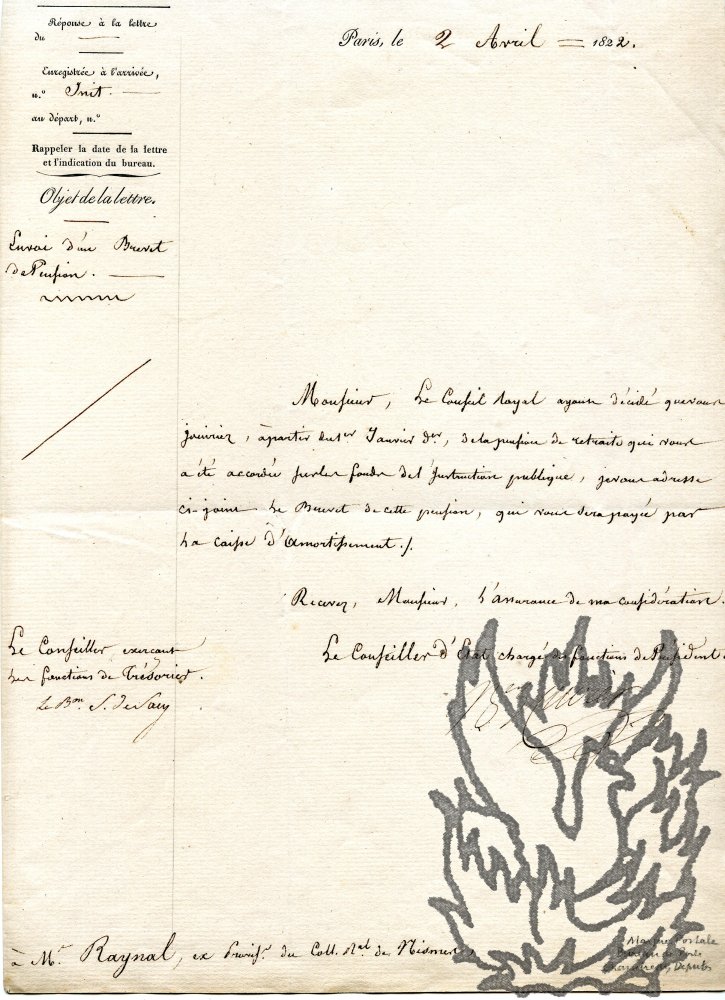 Réponse à la lettre
du
Enregistrée à l'arrivée,
n.º Init.
au départ, n.º
Rappeler la date de la lettre
et l'indication du bureau.
Objet de la lettre.
Envoi d'un Brevet
de Pension.
Paris, le 2 Avril 1822.
Monsieur, Le Conseil royal ayant décidé que vous
jouiriez, à partir du 1er Janvier der, de la pension de retraite qui vous
a été accordée sur les fonds de l'Instruction publique, je vous adresse
ci-joint le Brevet de cette pension, qui vous sera payée par
la caisse d'Amortissement ./.
Recevez, Monsieur, l'assurance de ma considération.
Le Conseiller d'Etat chargé des fonctions de Président.
Le Conseiller exerçant
les fonctions de Trésorier.
Le Bon S. de Sacy
à Mr. Raynal, ex Provis. du Coll. Ral. de Nismes
Marque Postale